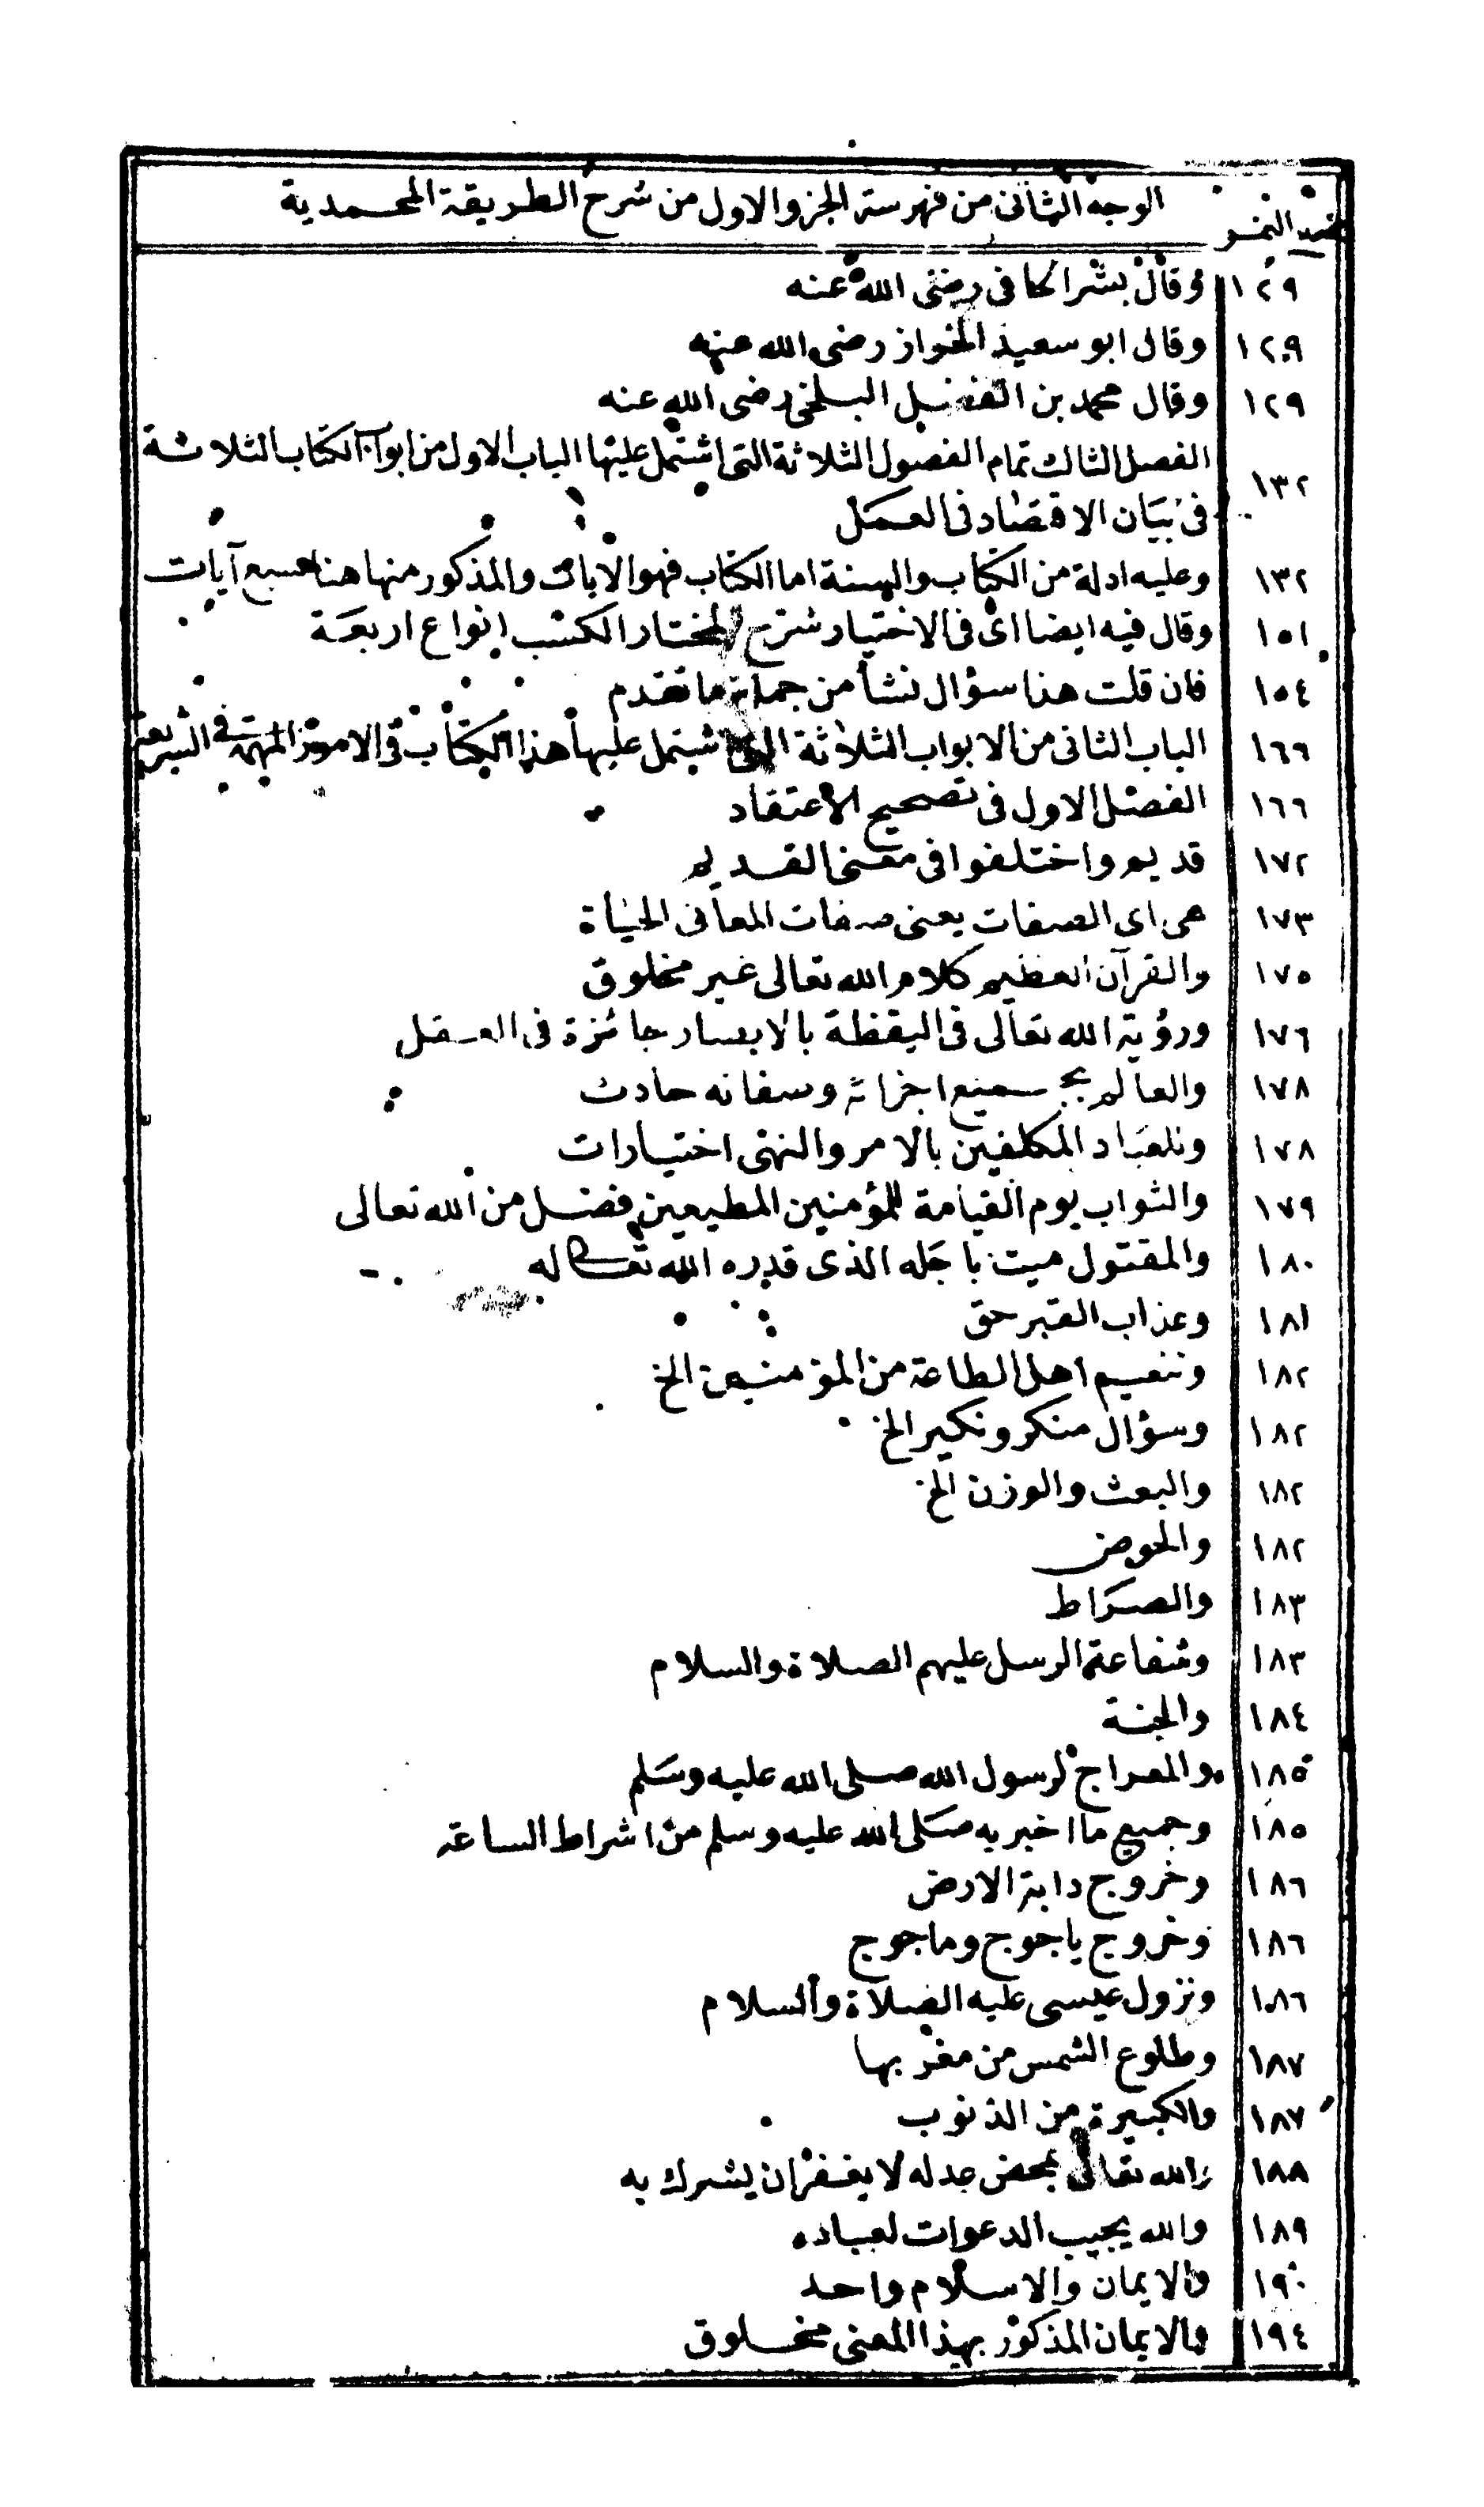 الوجه الثانى من فهرسة الجزو الاول من شرح الطريقة المحمدية
١٢٩ وقال بشر الحافى رضى الله عنه
١٢٩ وقال ابو سعيد الخراز رضى الله عنه
١٢٩ وقال محمد بن الفضل البلخى رضى الله عنه
١٣٢ الفصل الثالث تمام الفصول الثلاثة التى اشتمل عليها الباب الاول من ابواب الكتاب الثلاثة
فى بيان الاقتصاد فى العمل
١٣٢ وعليه ادلة من الكتاب والسنة اما الكتاب فهو الايات والمذكور منها هنا سبع آيات
١٥١ وقال فيه ايضا اى فى الاختيار شرح المختار الكسب انواع اربعة
١٥٤ فان قلت هذا سؤال نشأ من جملة ما تقدم
١٦٦ الباب الثانى من الابواب الثلاثة التى اشتمل عليها هذا الكتاب فى الامور المهمة فى الشريعة
١٦٦ الفصل الاول فى تصحيح الاعتقاد
١٧٢ قديم واختلفوا فى معنى القديم
١٧٣ هى اى الصفات يعنى صفات المعانى الحياة
١٧٥ والقرآن العظيم كلام الله تعالى غير مخلوق
١٧٦ ورؤية الله تعالى فى اليقظة بالابصار جائزة فى العقل
١٧٨ والعالم بجميع اجزائه وصفاته حادث
١٧٨ وللعباد المكلفين بالامر والنهى اختيارات
١٧٩ والثواب يوم القيامة للمؤمنين المطيعين فضل من الله تعالى
١٨٠ والمقتول ميت باجله الذى قدره الله تعالى له
١٨١ وعذاب القبر حق
١٨٢ وتنعيم اهل الطاعة من المؤمنين الخ
١٨٢ وسؤال منكر ونكير الخ
١٨٢ والبعث والوزن الخ
١٨٢ والحوض
١٨٣ والصراط
١٨٣ وشفاعة الرسل عليهم الصلاة والسلام
١٨٤ والجنة
١٨٥ والمعراج لرسول الله صلى الله عليه وسلم
١٨٥ وجميع ما اخبر به صلى الله عليه وسلم من اشراط الساعة
١٨٦ وخروج دابة الارض
١٨٦ وخروج ياجوج وماجوج
١٨٦ ونزول عيسى عليه الصلاة والسلام
١٨٧ وطلوع الشمس من مغربها
١٨٧ والكبيرة من الذنوب
١٨٨ والله تعالى بمحض عدله لا يغفر ان يشرك به
١٨٩ والله يجيب الدعوات لعباده
١٩٠ والايمان والاسلام واحد
١٩٤ والايمان المذكور بهذا المعنى مخلوق